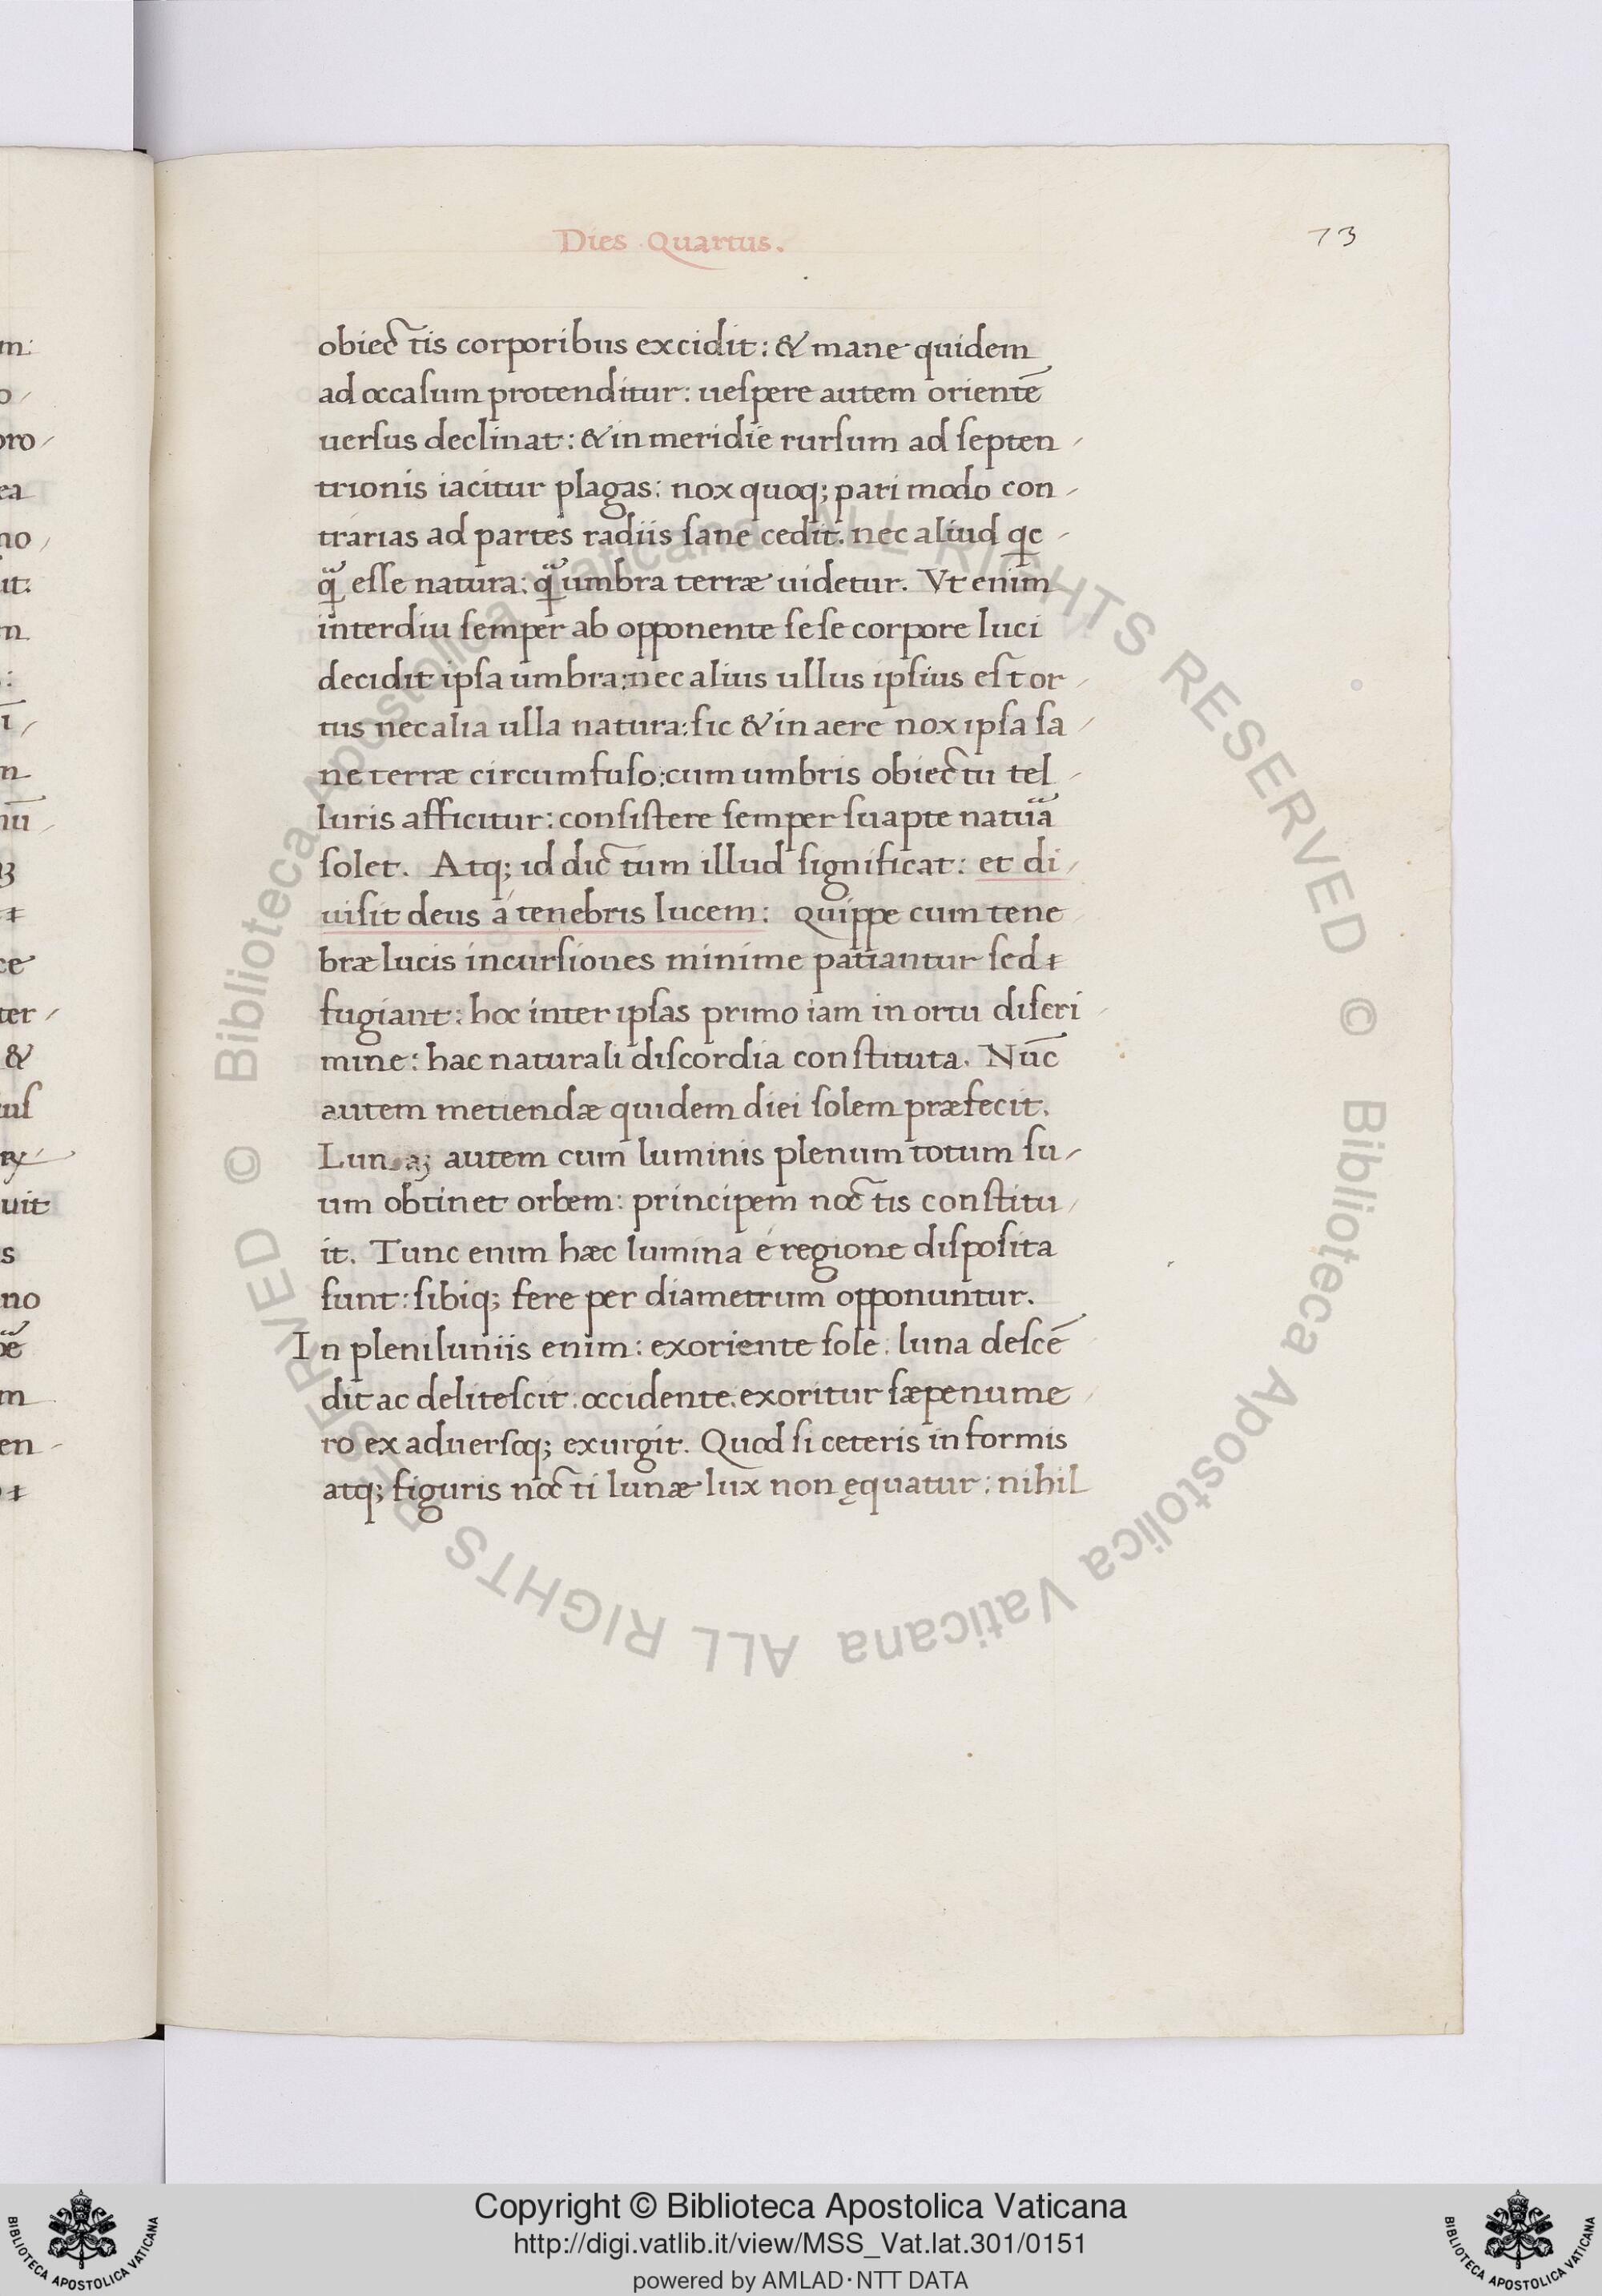 Dies Quartus.
73
obiectis corporibus excidit: & mane quidem
ad occasum protenditur: uespere autem orientē
uersus declinat: & in meridie rursum ad septen
trionis iacitur plagas: nox quoq; pari modo con
trarias ad partes radiis sane cedit. nec aliud
esse natura: umbra terræ uidetur. Vt enim
interdiu semper ab opponente sese corpore luci
decidit ipsa umbra: nec alius ullus ipsius est or
tus nec alia ulla natura: sic & in aere nox ipsa sa
ne terræ circumfuso: cum umbris obiectu tel
luris afficitur: consistere semper suapte natūa
solet. Atq; id dictum illud significat: et di
uisit deus á tenebris lucem: Quippe cum tene
bræ lucis incursiones minime patiantur sed
fugiant: hoc inter ipsas primo iam in ortu discri
mine: hac naturali discordia constituta. Nūc
autem metiendæ quidem diei solem præfecit.
autem cum luminis plenum totum su
um obtinet orbem: principem noctis constitu
it. Tunc enim hæc lumina é regione disposita
sunt: sibiq; fere per diametrum opponuntur.
In pleniluniis enim: exoriente sole. luna descē
dit ac delitescit: occidente. exoritur sæpenume
ro ex aduersoq; exurgit. Quod si ceteris in formis
atq; figuris nocti lunæ lux non ęquatur: nihil
m:
o
pro
ea
no
ut:
m
n
ce
ter
&
uit
s
no
m
en
© Biblioteca Apostolica Vaticana ALL RIGHTS RESERVED © Biblioteca Apostolica Vaticana ALL RIGHTS RESERVED
Copyright © Biblioteca Apostolica Vaticana
http://digi.vatlib.it/view/MSS_Vat.lat.301/0151
powered by AMLAD·NTT DATA
BIBLIOTECA APOSTOLICA VATICANA
BIBLIOTECA APOSTOLICA VATICANA